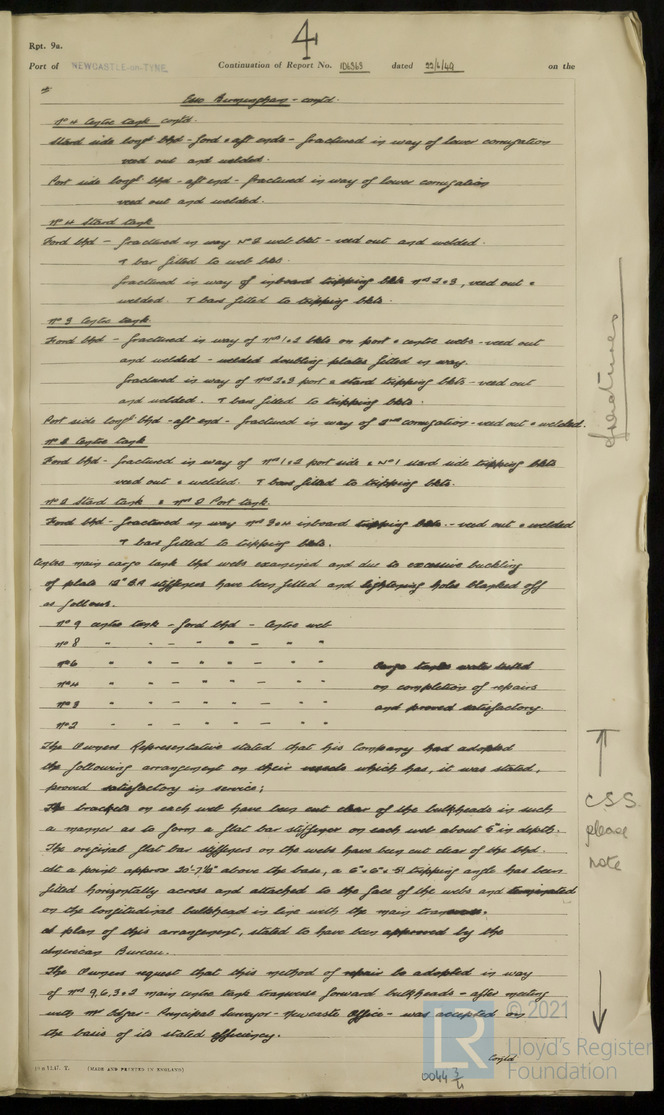 4
Rpt. 9a.
Port of NEWCASTLE-on-TYNE Continuation of Report No. 106363 dated 22/6/49 on the
Esso Birmingham - contd.
No 4 Centre tank contd.
Stard side longl bhd - ford & aft ends - fractured in way of lower corrugation
veed out and welded.
Port side longl bhd - aft end - fractured in way of lower corrugation
veed out and welded.
No 4 Stard tank
Ford bhd - fractured in way No 2 web bkt - veed out and welded.
T bar fitted to web bkt.
fractured in way of inboard tripping bkts Nos 2 & 3, veed out &
welded. T bars fitted to tripping bkts.
No 3 Centre tank
Ford bhd - fractured in way of Nos 1 & 2 bkts on port & centre webs - veed out
and welded - welded doubling plates fitted in way.
fractured in way of Nos 2 & 3 port & stard tripping bkts - veed out
and welded. T bars fitted to tripping bkts.
Port side longl bhd - aft end - fractured in way of 2nd corrugation - veed out & welded.
No 2 Centre tank
Ford bhd - fractured in way of Nos 1 & 2 port side & No 1 stard side tripping bkts
veed out & welded. T bars fitted to tripping bkts.
No 2 Stard tank & No 2 Port tank.
Ford bhd - fractured in way Nos 3 & 4 inboard tripping bkts. - veed out & welded
T bars fitted to tripping bkts.
Centre main cargo tank bhd webs examined and due to excessive buckling
of plate 12" B.A stiffeners have been fitted and lightening holes blanked off
as follows.
No 9 centre tank - ford bhd - Centre web
No 8 " " - " " - " "
No 6 " " - " " - " " Cargo tanks water tested
No 4 " " - " " - " " on completion of repairs
No 3 " " - " " - " " and proved satisfactory.
No 2 " " - " " - " "
The Owners Representative stated that his Company had adopted
the following arrangement on their vessels which has, it was stated,
proved satisfactory in service;
The brackets on each web have been cut clear of the bulkheads in such
a manner as to form a flat bar stiffener on each web about 6" in depth.
The original flat bar stiffeners on the webs have been cut clear of the bhd.
At a point approx 20'-7½" above the base, a 6" x 6" x .51 tripping angle has been
fitted horizontally across and attached to the face of the webs and terminated
on the longitudinal bulkhead in line with the main transverse.
A plan of this arrangement, stated to have been approved by the
American Bureau.
The Owners request that this method of repair be adopted in way
of Nos 9, 6, 3 & 2 main centre tank transverse forward bulkheads - after meeting
with Mr Edgar - Principal Surveyor - Newcastle Office - was accepted on
the basis of its stated efficiency.
Contd
fractures
C.S.S.
please
note
(MADE AND PRINTED IN ENGLAND)
0044 3/4
LR
© 2021
Lloyd's Register
Foundation